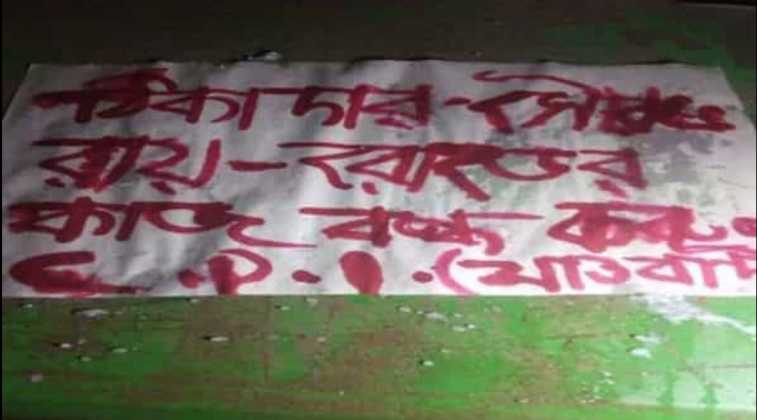 ঠিকাদার - সৌরভ
রায় - বরাহতের
কাজ বন্ধ কর।
C.P.I. (মাওবাদী